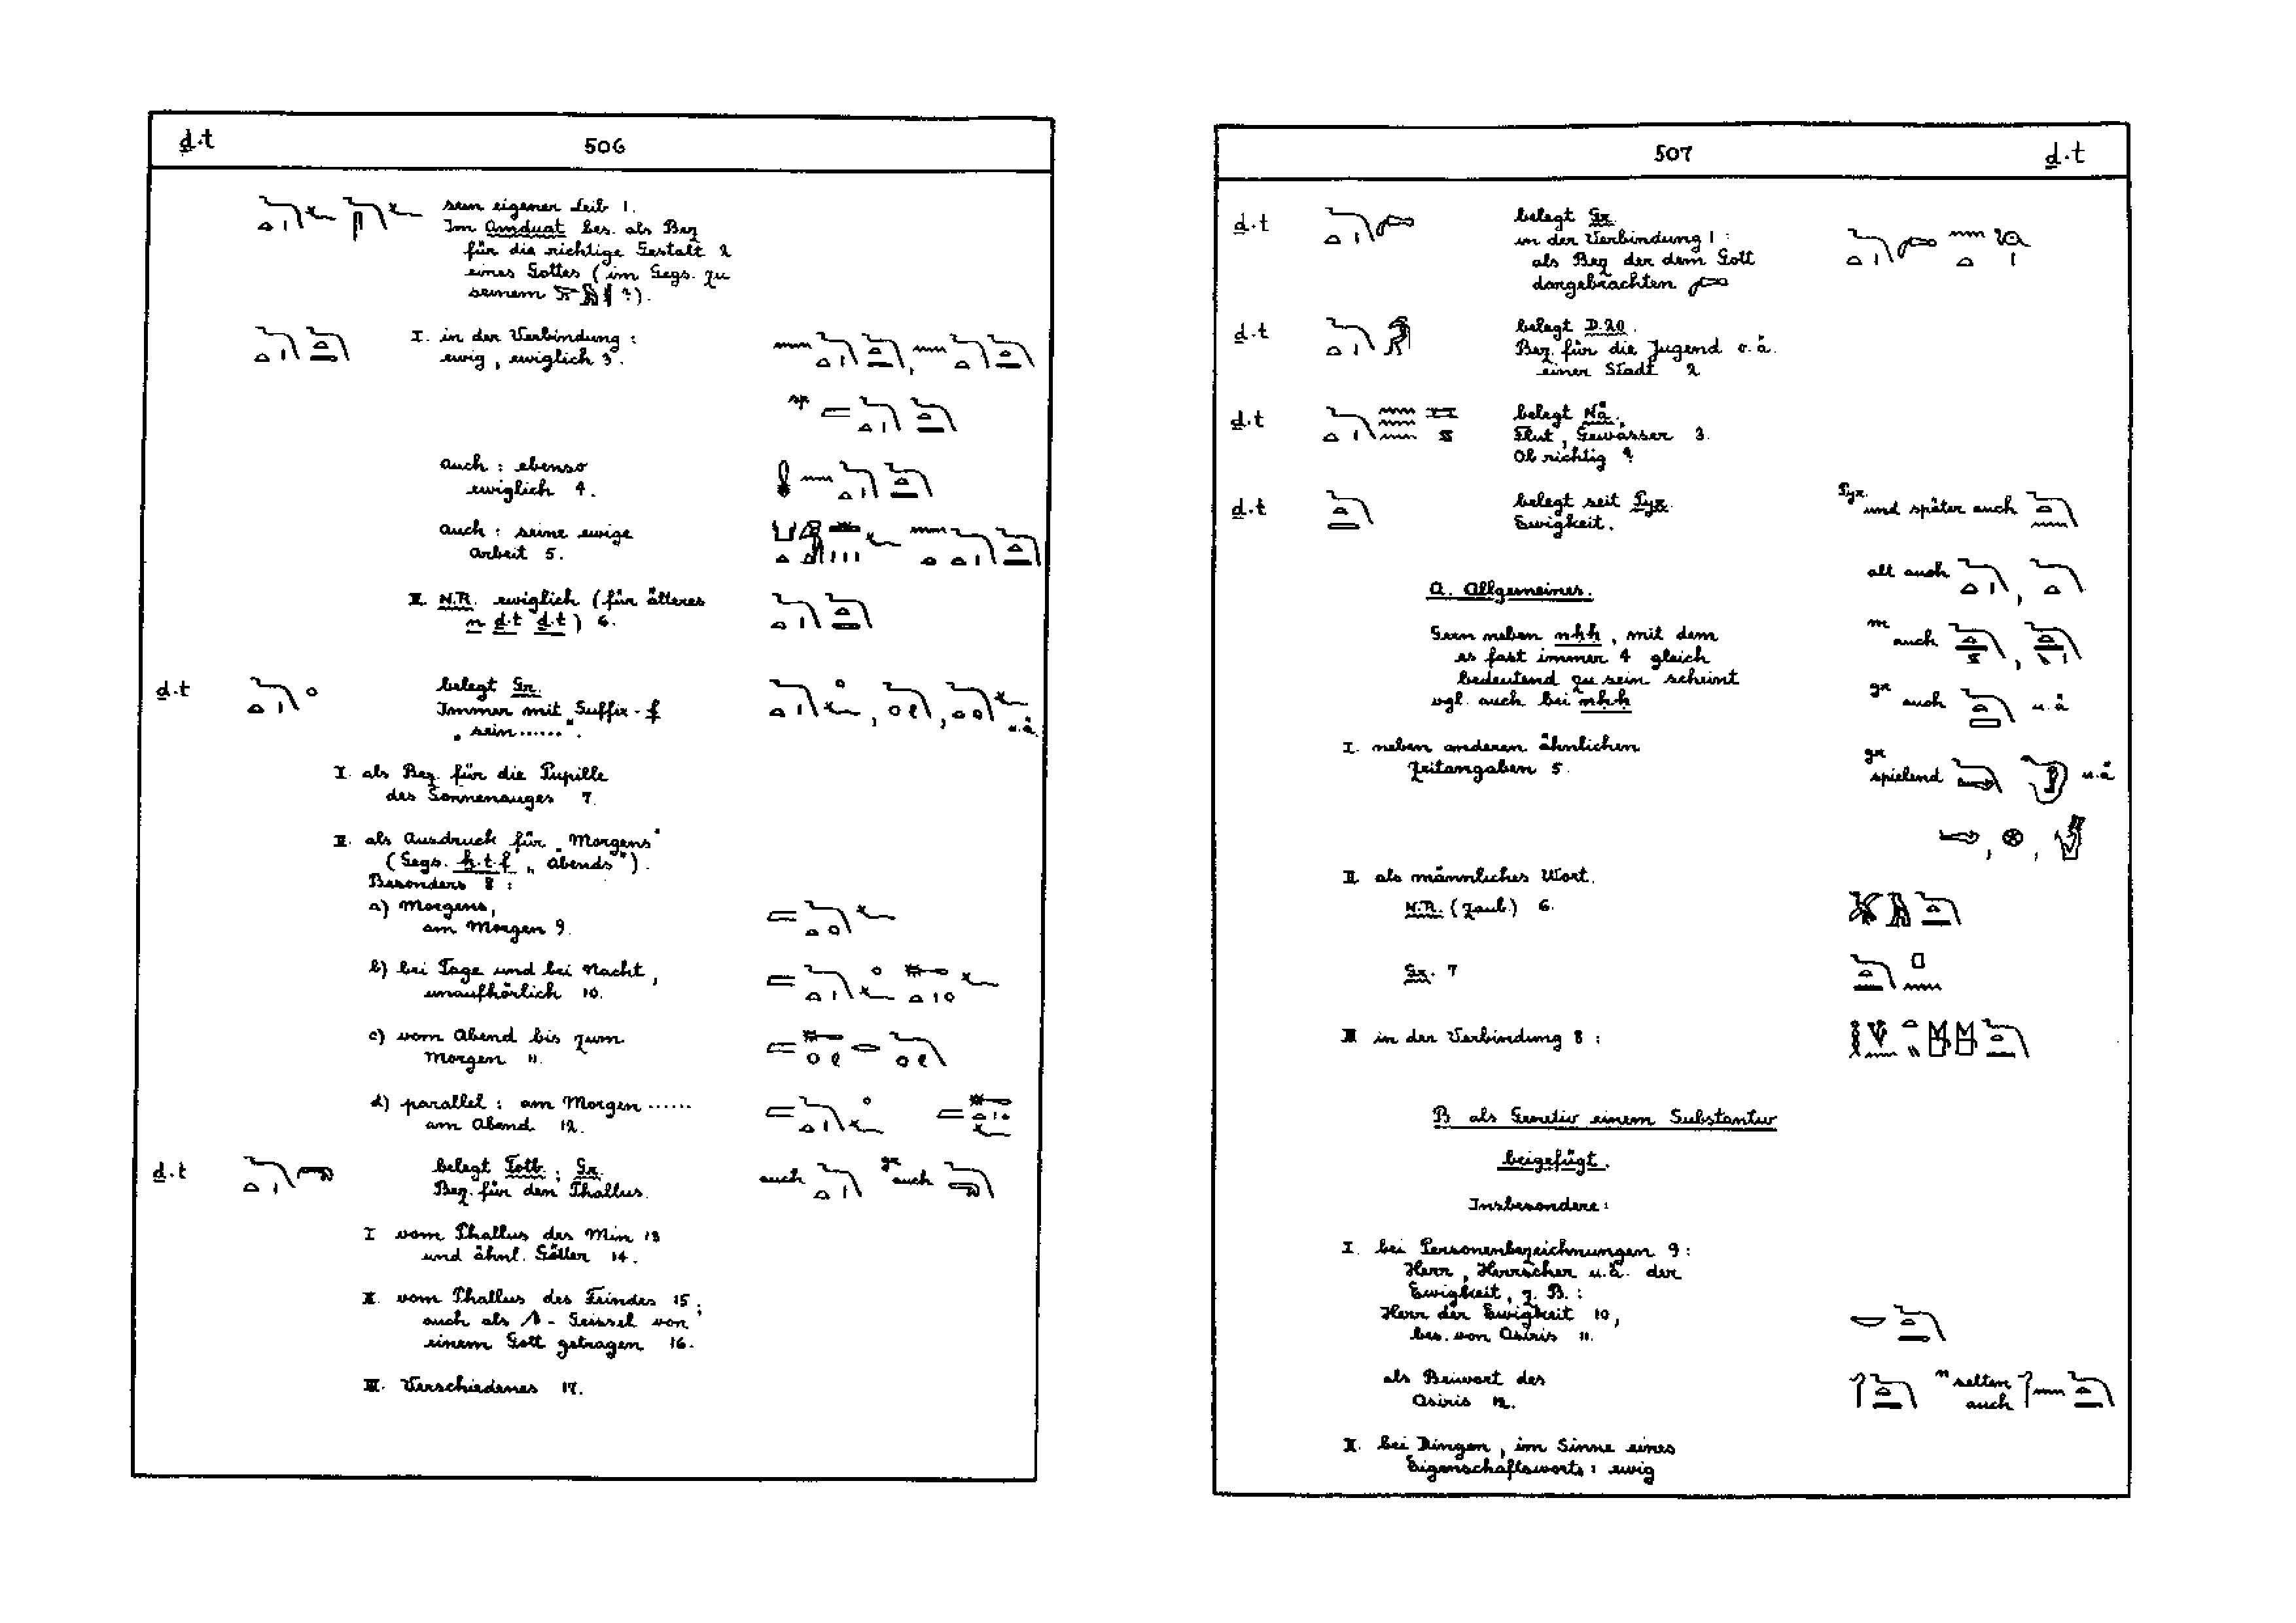 ḏ.t 506
sein eigener Leib 1.
Im Amduat bes. als Bez
für die richtige Gestalt 2
eines Gottes (im Gegs. zu
seinem ?).
I. in der Verbindung:
ewig, ewiglich 3.
sp
auch: ebenso
ewiglich 4.
auch: seine ewige
Arbeit 5.
II. N.R. ewiglich (für älteres
n ḏ.t ḏ.t) 6.
ḏ.t belegt Gr.
Immer mit Suffix -f
„sein......“.
u.ä.
I. als Bez. für die Pupille
des Sonnenauges 7.
II. als Ausdruck für „Morgens“
(Gegs. ẖ.t.f „Abends“).
Besonders 8:
a) Morgens,
am Morgen 9.
b) bei Tage und bei Nacht,
unaufhörlich 10.
c) vom Abend bis zum
Morgen 11.
d) parallel: am Morgen ......
am Abend 12.
ḏ.t belegt Totb.; Gr. auch gr auch
Bez. für den Phallus.
I vom Phallus des Min 13
und ähnl. Götter 14.
II. vom Phallus des Feindes 15;
auch als - Geissel von
einem Gott getragen 16.
III. Verschiedenes 17.
507 ḏ.t
ḏ.t belegt Gr.
in der Verbindung 1:
als Bez der dem Gott
dargebrachten
ḏ.t belegt D.20.
Bez. für die Jugend o.ä.
einer Stadt 2
ḏ.t belegt Nä.
Flut, Gewässer 3.
Ob richtig ?
ḏ.t belegt seit Pyr. Pyr. und später auch
Ewigkeit.
alt auch
A. Allgemeines.
Gern neben nḥḥ, mit dem
m auch
es fast immer 4 gleich
bedeutend zu sein scheint
vgl. auch bei nḥḥ
gr auch u.ä
I. neben anderen ähnlichen
Zeitangaben 5.
gr spielend u.ä
II. als männliches Wort.
N.R. (Zaub.) 6.
Gr. 7
III in der Verbindung 8:
B als Genetiv einem Substantiv
beigefügt.
Insbesondere:
I. bei Personenbezeichnungen 9:
Herr, Herrscher u.ä. der
Ewigkeit, z. B.:
Herr der Ewigkeit 10,
bes. von Osiris 11.
als Beiwort des
Osiris 12.
n selten
auch
II. bei Dingen, im Sinne eines
Eigenschaftsworts: ewig